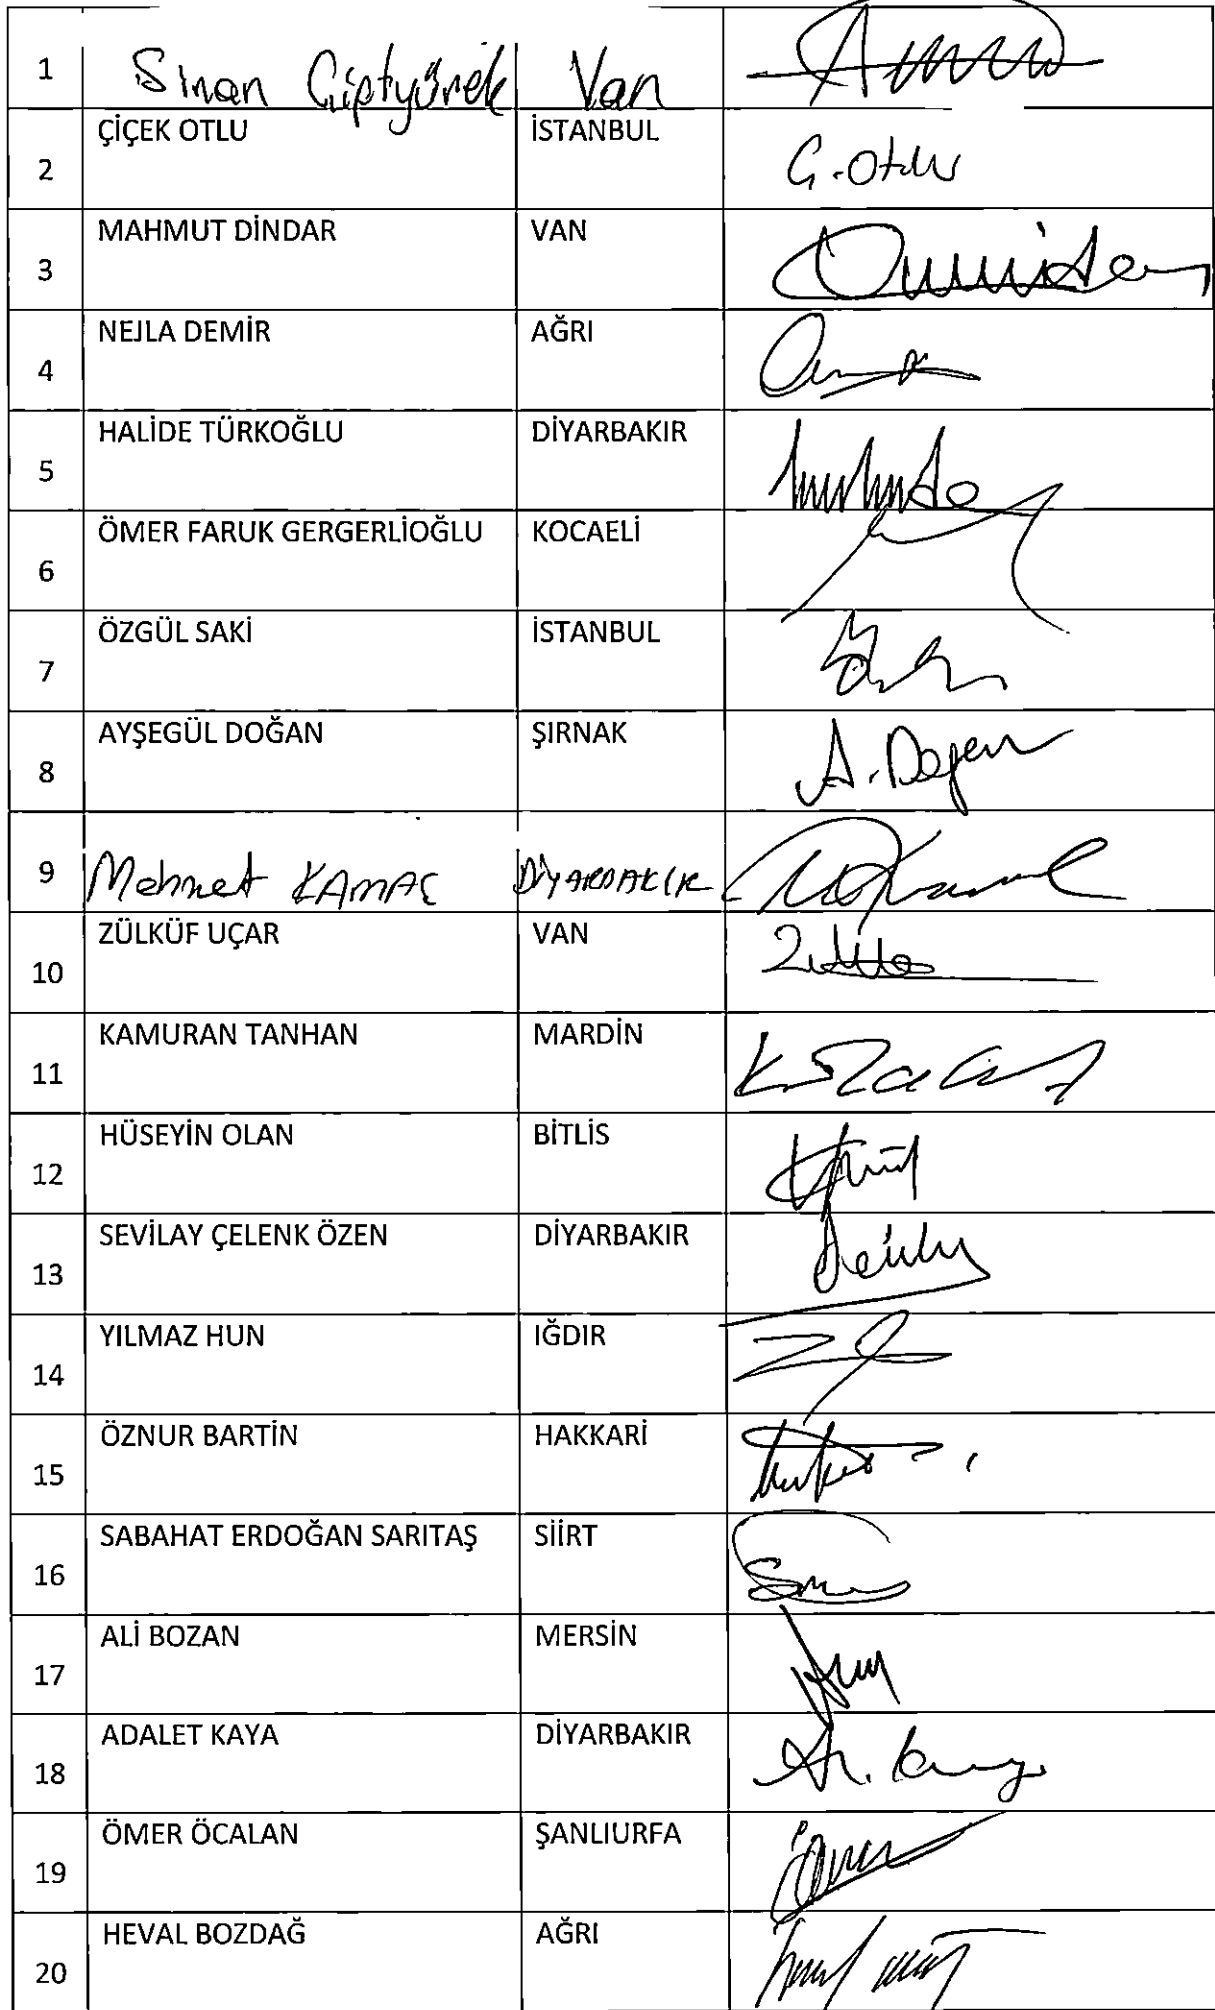 1 Sinan Çiftyürek Van
ÇİÇEK OTLU İSTANBUL
2 Ç.Otlu
MAHMUT DİNDAR VAN
3
NEJLA DEMİR AĞRI
4
HALİDE TÜRKOĞLU DİYARBAKIR
5
ÖMER FARUK GERGERLİOĞLU KOCAELİ
6
ÖZGÜL SAKİ İSTANBUL
7
AYŞEGÜL DOĞAN ŞIRNAK
8 A.Dogan
9 Mehmet KAMAÇ DİYARBAKIR
ZÜLKÜF UÇAR VAN
10
KAMURAN TANHAN MARDİN
11
HÜSEYİN OLAN BİTLİS
12
SEVİLAY ÇELENK ÖZEN DİYARBAKIR
13
YILMAZ HUN IĞDIR
14
ÖZNUR BARTİN HAKKARİ
15
SABAHAT ERDOĞAN SARITAŞ SİİRT
16
ALİ BOZAN MERSİN
17
ADALET KAYA DİYARBAKIR
18
ÖMER ÖCALAN ŞANLIURFA
19
HEVAL BOZDAĞ AĞRI
20